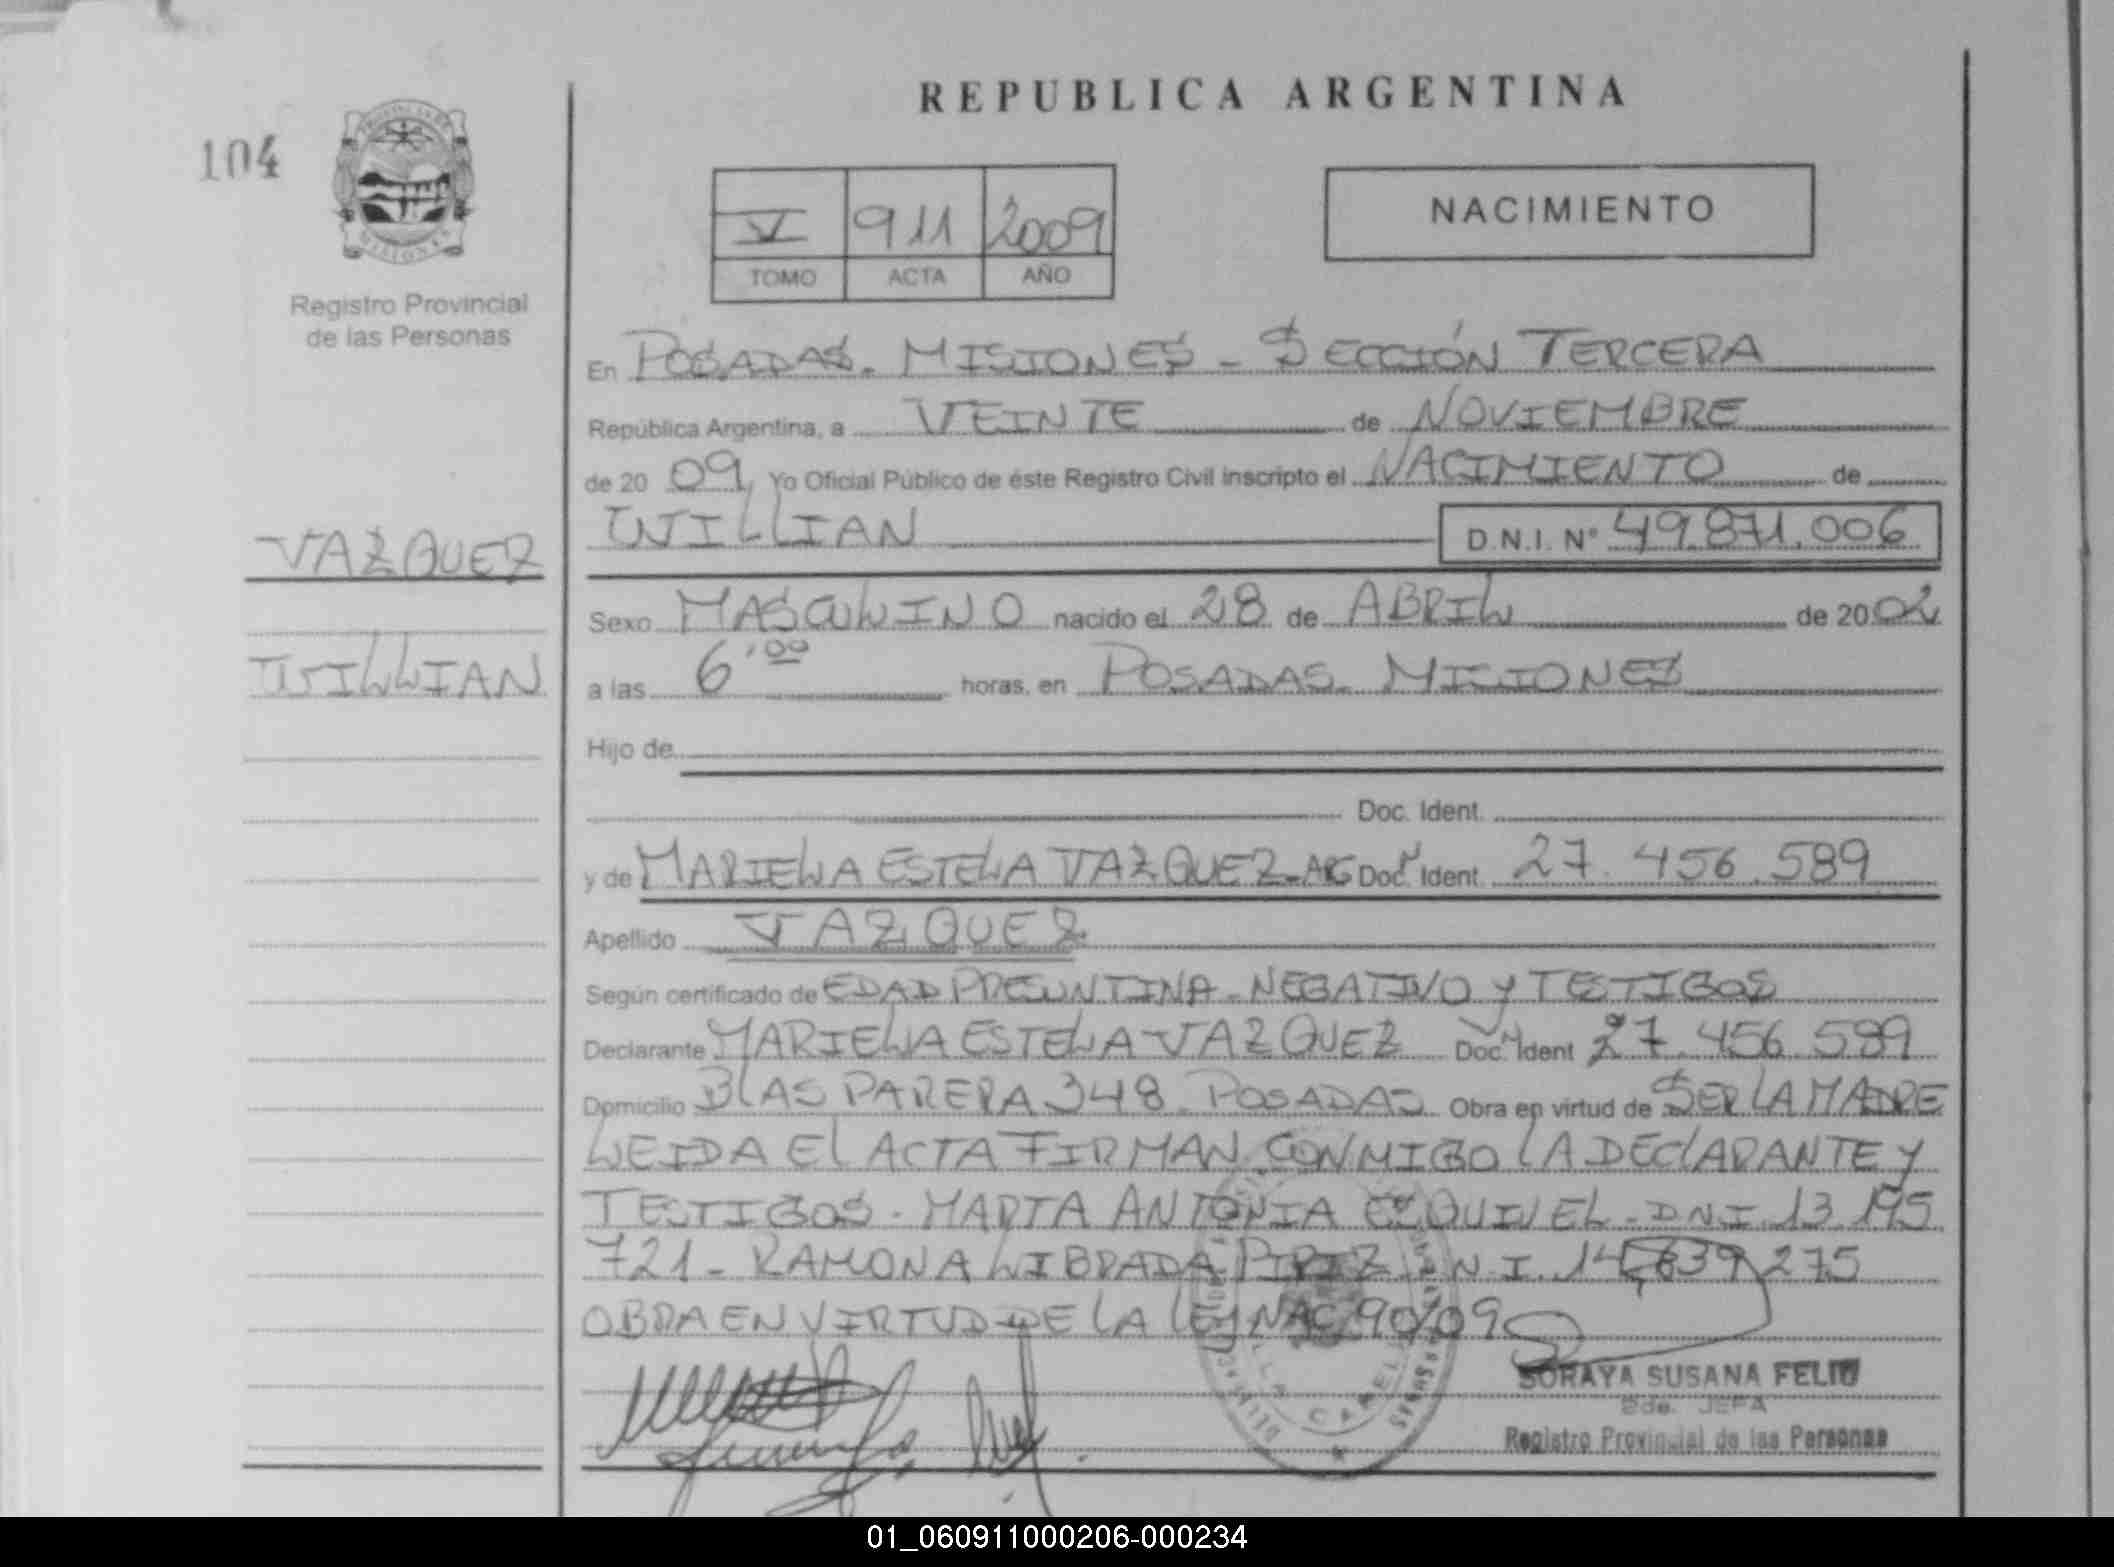 REPUBLICA ARGENTINA
104
V 911 2009
TOMO ACTA AÑO
NACIMIENTO
Registro Provincial
de las Personas
VAZQUEZ
WILLIAN
En POSADAS. MISIONES - SECCIÓN TERCERA
República Argentina, a VEINTE de NOVIEMBRE
de 20 09, Yo Oficial Público de éste Registro Civil inscripto el NACIMIENTO de
WILLIAN D.N.I. N° 49.871.006
Sexo MASCULINO nacido el 28 de ABRIL de 2002
a las 6,00 horas, en POSADAS. MISIONES
Hijo de
Doc. Ident.
y de MARIELA ESTELA VAZQUEZ - ARG Doc. Ident. 27.456.589
Apellido VAZQUEZ
Según certificado de EDAD PRESUNTINA - NEGATIVO Y TESTIGOS
Declarante MARIELA ESTELA VAZQUEZ Doc. Ident 27.456.589
Domicilio BLAS PARERA 348 - POSADAS Obra en virtud de SER LA MADRE
LEIDA El ACTA FIRMAN CONMIGO LA DECLARANTE Y
TESTIGOS - MARTA ANTONIA ESQUIVEL - D.N.I. 13.195
721 - RAMONA LIBRADA PIRIZ D.N.I. 14.639.275
OBRA EN VIRTUD DE LA LEY NAC 90/09
SORAYA SUSANA FELIU
2da. JEFA
Registro Provincial de las Personas
01_060911000206-000234